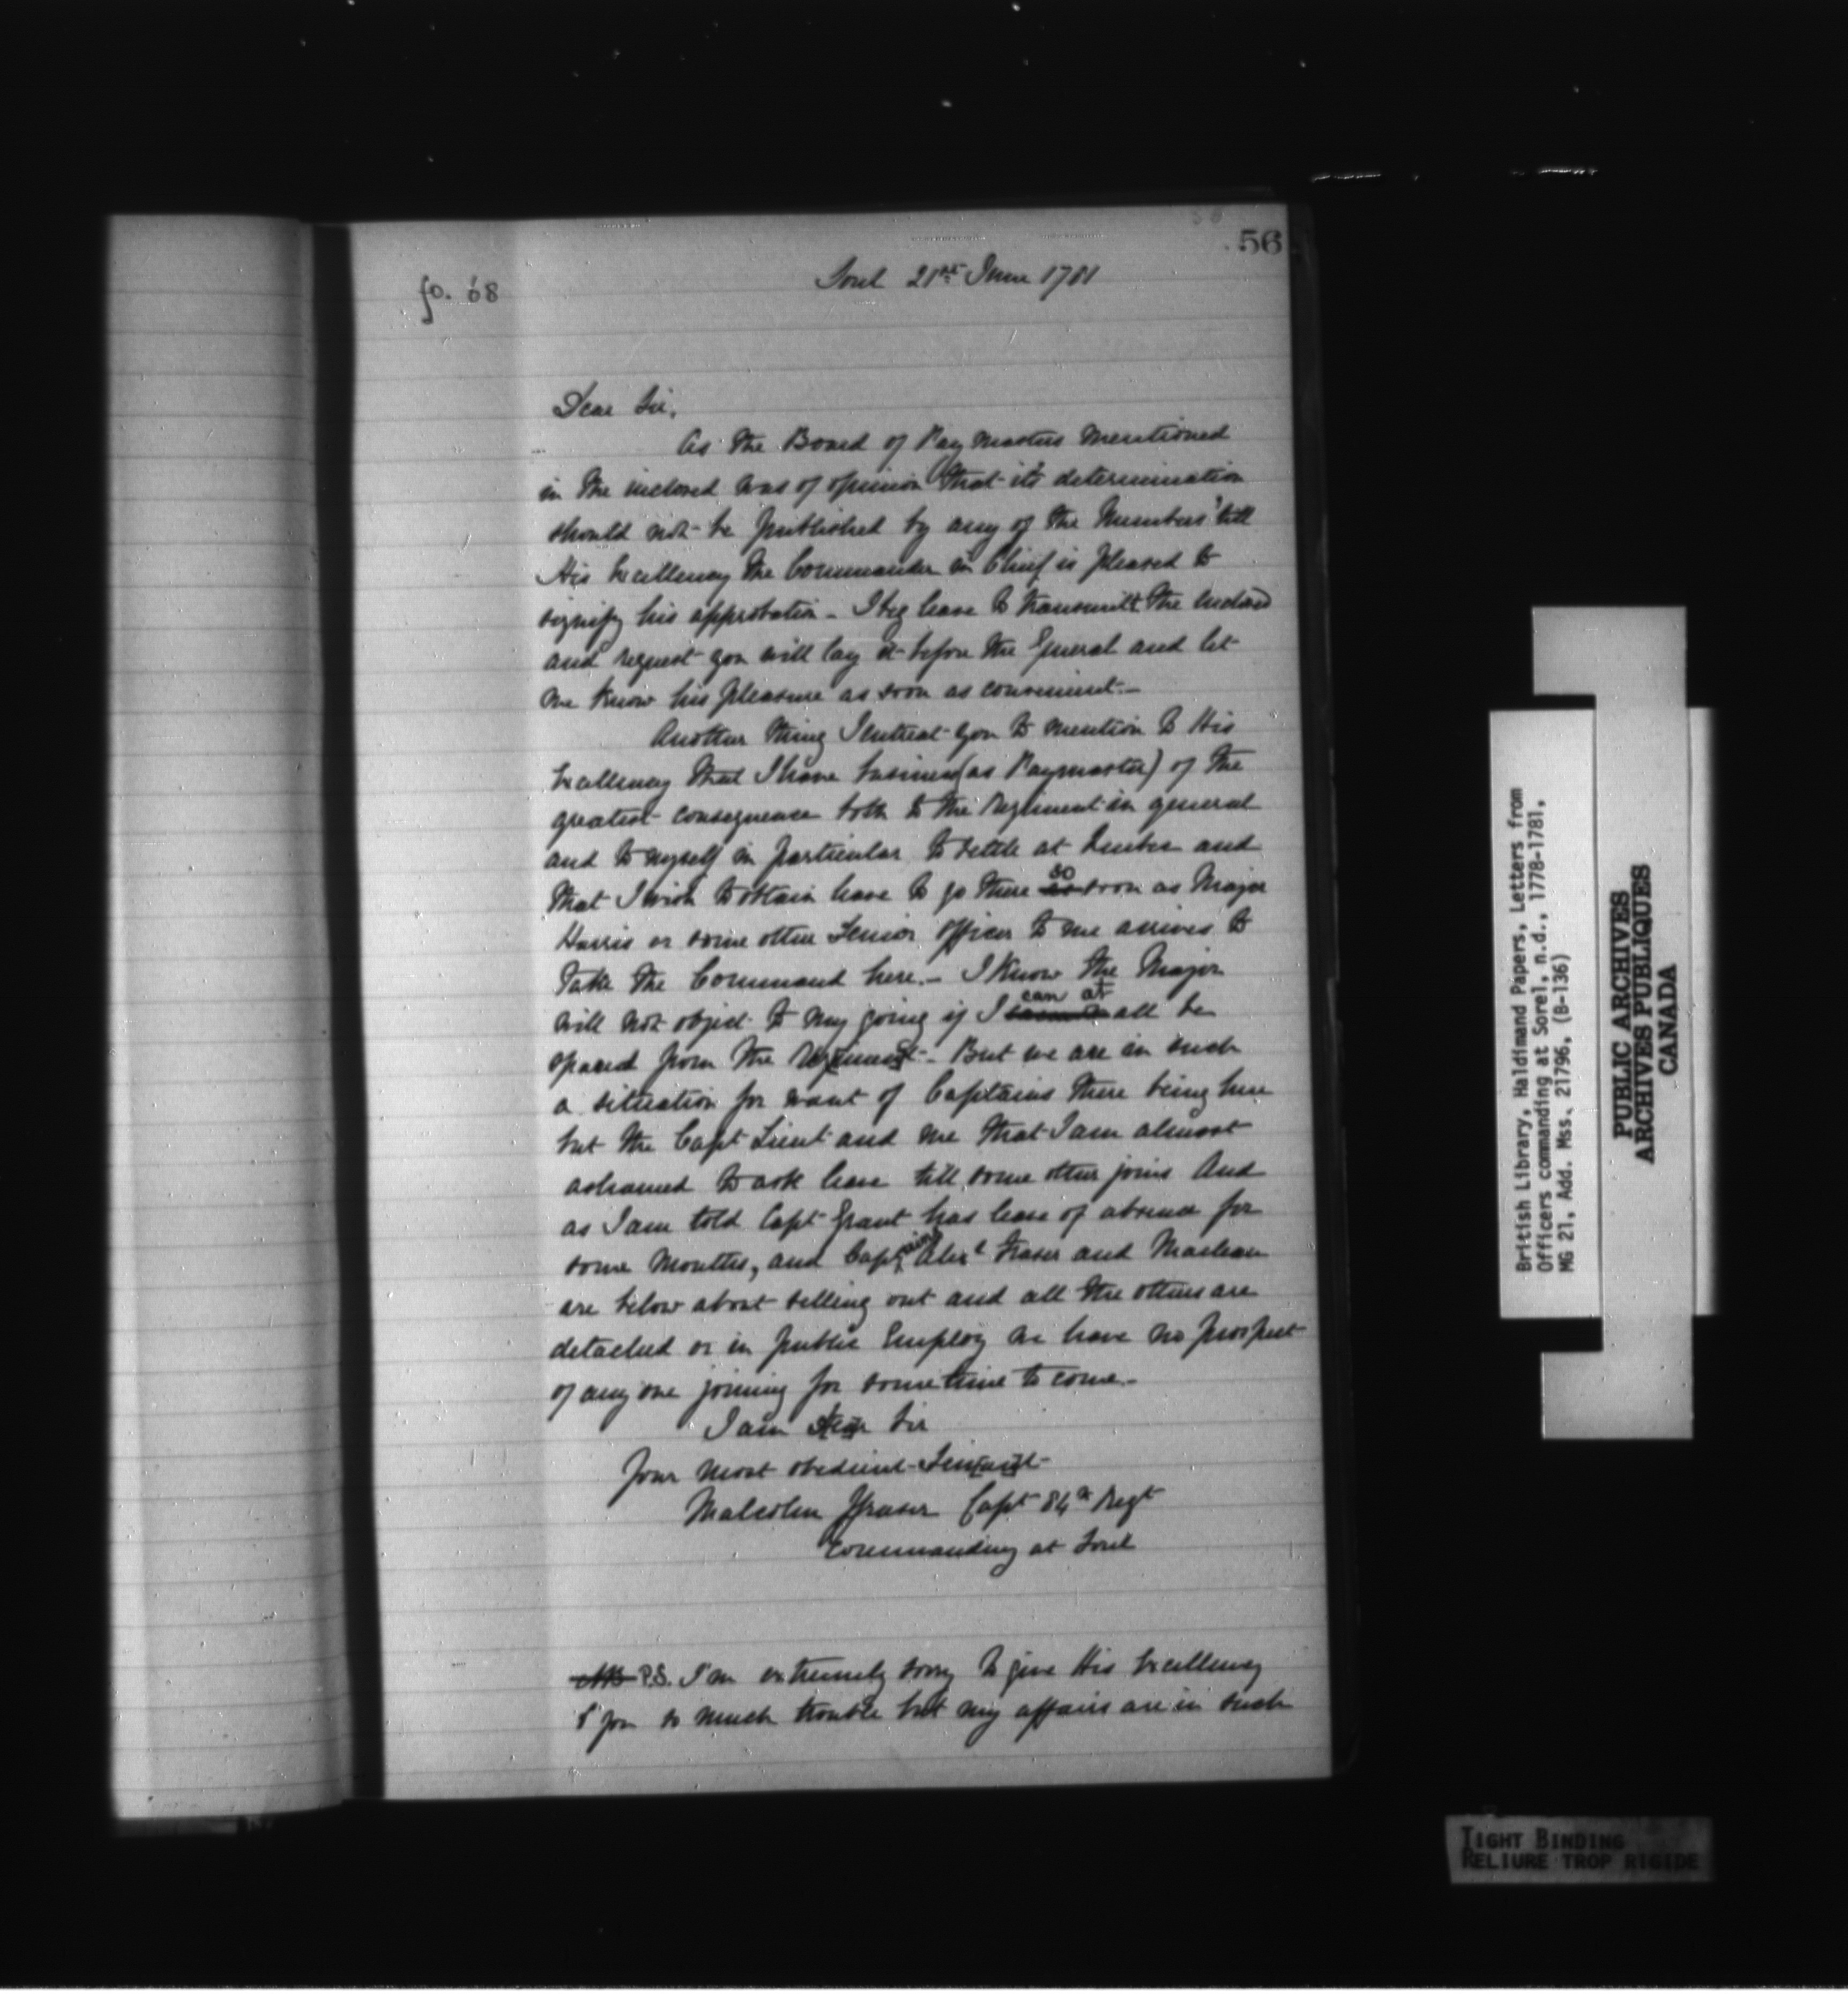 56
fo. 68
Sorel 21st June 1781
Dear Sir,
As the Board of Paymasters mentioned
in the inclosed was of opinion that its determination
should not be published by any of the Members 'till
His Excellency the Commander in Chief is pleased to
signify his approbation - I beg leave to transmitt the inclosed
and request you will lay it before the General and let
me know his pleasure as soon as convenient.-
Another thing I intreat you to mention to His
Excellency that I have business (as Paymaster) of the
greatest consequence both to the Regiment in general
and to myself in particular to settle at Quebec and
that I wish to obtain leave to go there so soon as Major
Harris or some other Senior Officer to me arrives to
take the Command here.- I know the Major
will not object to my going if I can at all be
spared from the Regiment - But we are in such
a situation for want of Captains there being here
but the Capt Lieut and me that I am almost
ashamed to ask leave till some other joins And
as I am told Capt Grant has leave of absence for
some months, and Captains Alexr Fraser and Maclean
are below about selling out and all the others are
detached or in public Employ we have no prospect
of any one joining for some time to come.-
I am Dear Sir
Your most obedient Servant
Malcolm Fraser Capt 84th Regt
Commanding at Sorel
NB P.S. I'm extremely sorry to give His Excellency
& you so much trouble but my affairs are in such
British Library, Haldimand Papers, Letters from
Officers commanding at Sorel, n.d., 1778-1781.
MG 21, Add. Mss. 21796, (B-136)
PUBLIC ARCHIVES
ARCHIVES PUBLIQUES
CANADA
TIGHT BINDING
RELIURE TROP RIGIDE